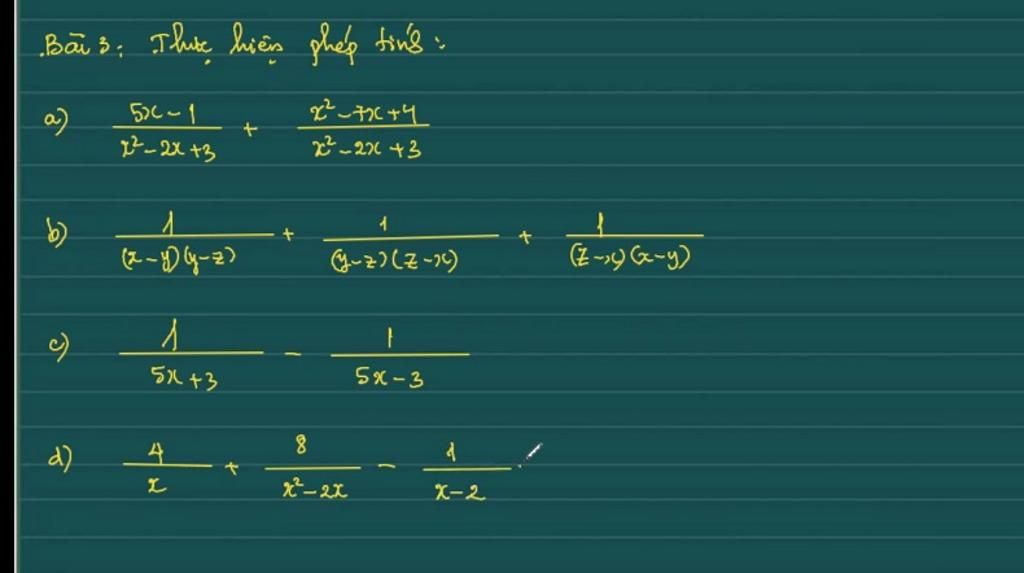 Bài 3: Thực hiện phép tính:
a) \frac{5x-1}{x^2-2x+3} + \frac{x^2-7x+4}{x^2-2x+3}
b) \frac{1}{(x-y)(y-z)} + \frac{1}{(y-z)(z-x)} + \frac{1}{(z-x)(x-y)}
c) \frac{1}{5x+3} - \frac{1}{5x-3}
d) \frac{4}{x} + \frac{8}{x^2-2x} - \frac{1}{x-2}.